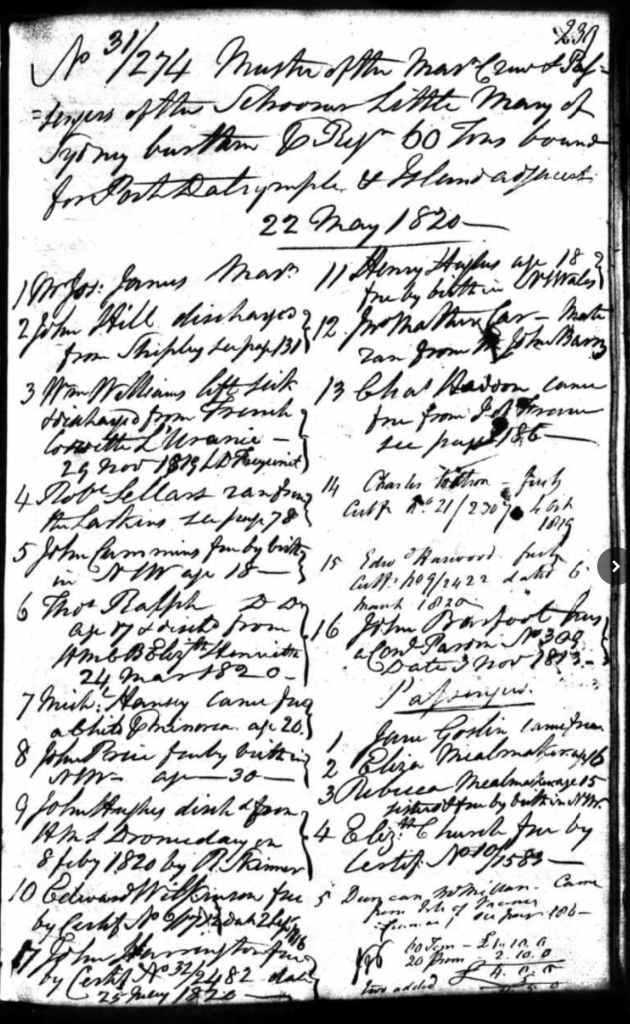 239
No 31/274 Muster of the Masr Crew & Pas=
=sengers of the Schooner Little Mary of
Sydney burthen P Regr 60 Tons bound
for Port Dalrymple & Island adjacent
22 May 1820
1 Mr Jos: James Masr
2 John Hill discharged
from Shipley see page 131
3 Wm Williams left sick
& discharged from French
Corvette L'Uranie
29 Nov 1819 L D Freycinet
4 Robt Sellars ran from
the Larkins see page 78
5 John Cummins free by birth
in NSW age 18
6 Thos Ralph D D
age 17 & discd from
HMCB Elizth Henrietta
24 Mar 1820
7 Michl Hansey came free
a child P Minorca age 20
8 John Price free by birth in
NSW age 30
9 John Hughes disch'd from
HMS Dromedary on
8 feby 1820 by R. Skinner
10 Edward Wilkinson free
by Certif No
17 John Harrington free
by Certif No 32/2482 date
25 July 1820
11 Henry Hughes age 18
free by birth in N S Wales
12 Jno Mathew
ran from the John Barry
13 Chas came
free from
see page 186
14 Charles free
Certf. No 21/2307 4 Oct
1819
15 Edwd Harwood free
Certf: No 9/2422 dated 6
March 1820
16 John Barfoot has
a Cond Pardon No 309
Date 3 Nov 1813
Passengers
1 Jane Goslin came free
2 Eliza Mealmaker age 16
3 Rebecca Mealmaker age 15
sisters & free by birth in NSW
4 Elizth Church free by
Certif. No 10/1583
5 Duncan McMillan. Came
from Isle of France
see page 186
60 Tons - £1.10.0
20 2.10.0
£4.0.0
added